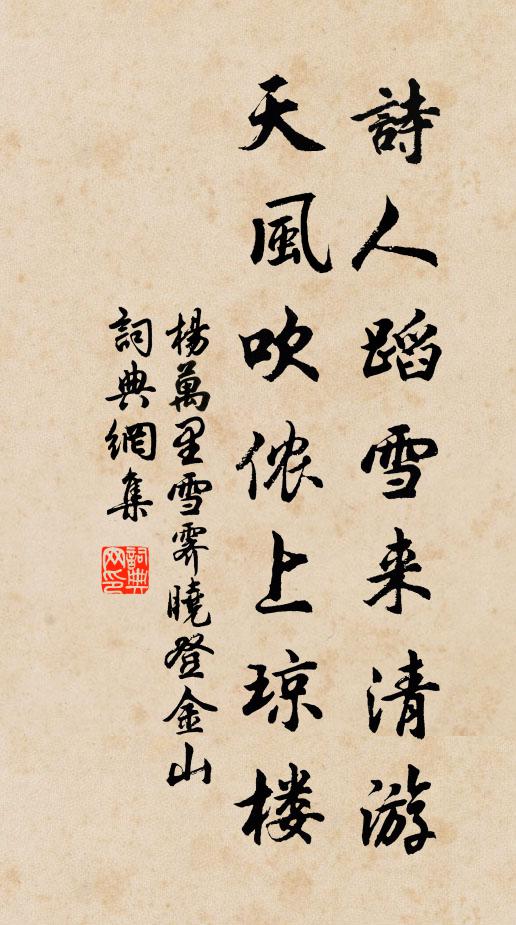 詩人蹈雪来清游
天風吹侬上琼楼
楊萬里雪霽曉登金山
詞典網集
詞典
网印